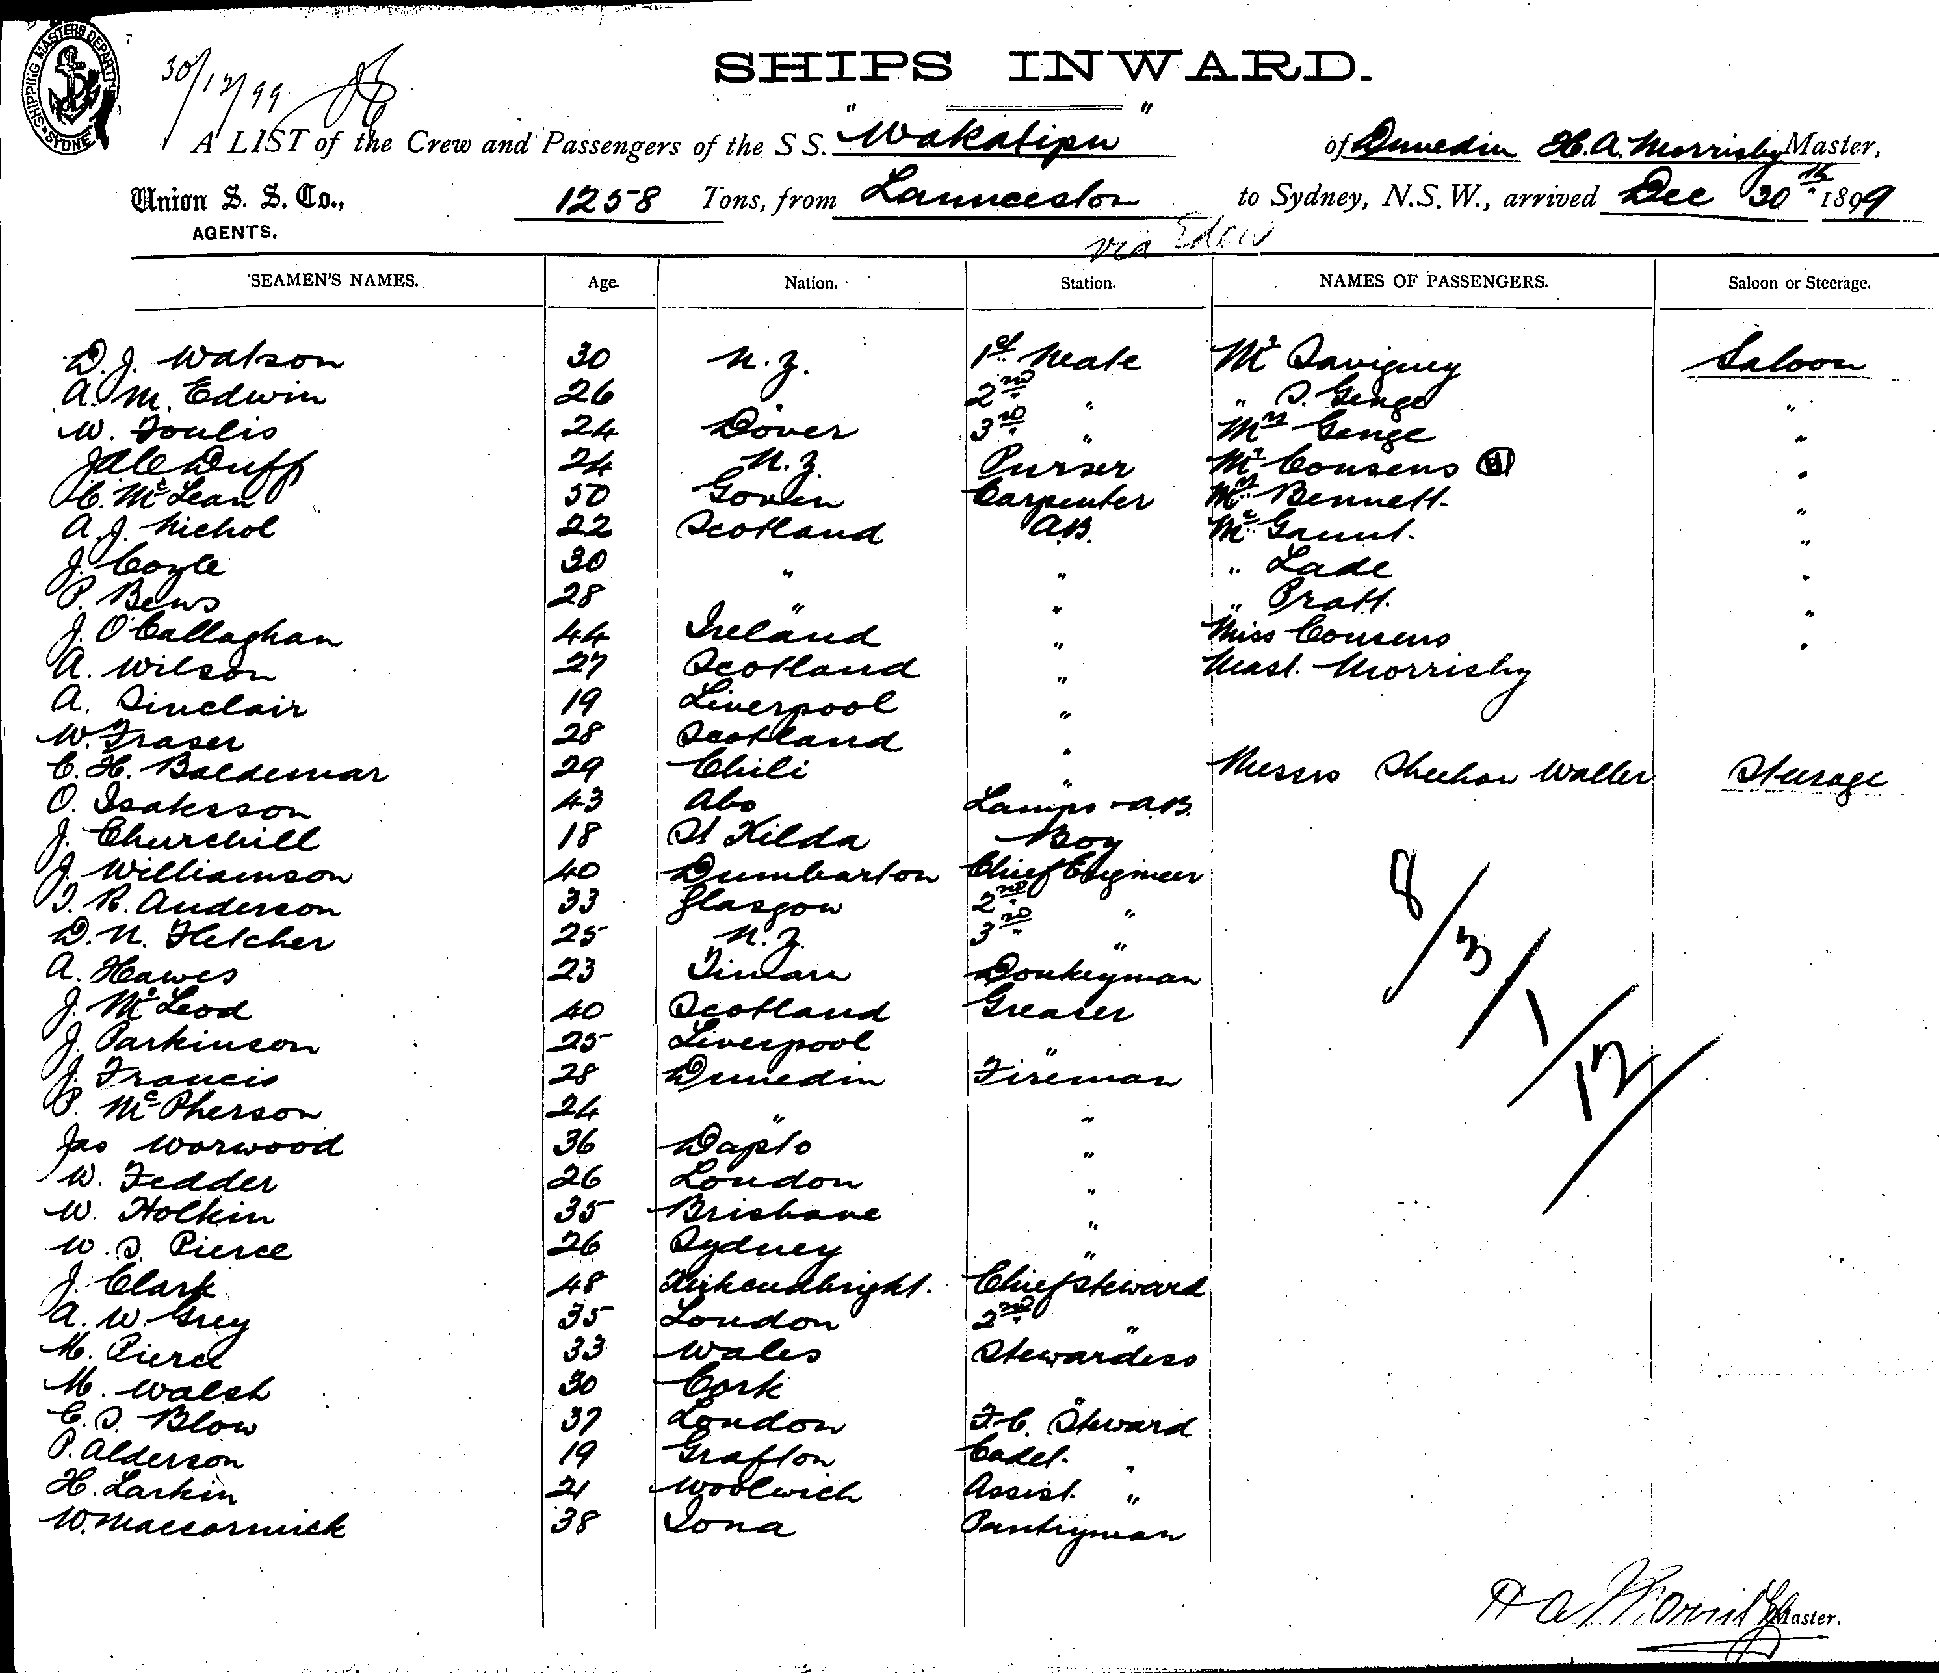 SHIPPING MASTERS DEPARTT
SYDNEY
30/12/99
SHIPS INWARD.
A LIST of the Crew and Passengers of the S S. "Wakatipu" of Dunedin H. A. Morrisby Master,
Union S. S. Co., 1258 Tons, from Launceston to Sydney, N.S.W., arrived Dec 30th 1899
AGENTS.
via Eden
SEAMEN'S NAMES. Age. Nation. Station. NAMES OF PASSENGERS. Saloon or Steerage.
D. J. Watson 30 N.Z. 1st Mate Mr Savigney Saloon
A. M. Edwin 26 " 2nd " " S. Genge "
W. Foulis 24 Dover 3rd " Mrs Genge "
Duff 24 N.Z. Purser Mr Cousens "
C. McLean 50 Govan Carpenter Mrs Bennett "
A. J. Nichol 22 Scotland A.B. Mr Gaunt "
J. Coyle 30 " " " Lade "
P. Bews 28 " " " Pratt "
J. O'Callaghan 44 Ireland " Miss Cousens "
A. Wilson 27 Scotland " Mast. Morrisby
A. Sinclair 19 Liverpool "
W. Fraser 28 Scotland "
C. H. Baldemar 29 Chili " Messrs Sheehan Waller Steerage
O. Isaksson 43 Abo Lamps & A.B.
J. Churchill 18 St Kilda Boy
J. Williamson 40 Dumbarton Chief Engineer
T. R. Anderson 33 Glasgow 2nd "
D. N. Fletcher 25 N.Z. 3rd "
A. Hawes 23 Timaru Donkeyman
J. McLeod 40 Scotland Greaser
J. Parkinson 25 Liverpool "
J. Francis 28 Dunedin Fireman
P. McPherson 24 " "
Jas Worwood 36 Dapto "
W. Fedder 26 London "
W. Holkin 35 Brisbane "
W. S. Pierce 26 Sydney "
J. Clark 48 Kirkcudbright. Chief Steward
A. W. Grey 35 London 2nd "
M. Pierce 33 Wales Stewardess
M. Walsh 30 Cork "
C. S. Blow 37 London F.C. Steward
P. Alderson 19 Grafton Cadet. "
H. Larkin 21 Woolwich Assist. "
W. Maccormick 38 Iona Pantryman
8/3/1/12
H A Morrisby Master.